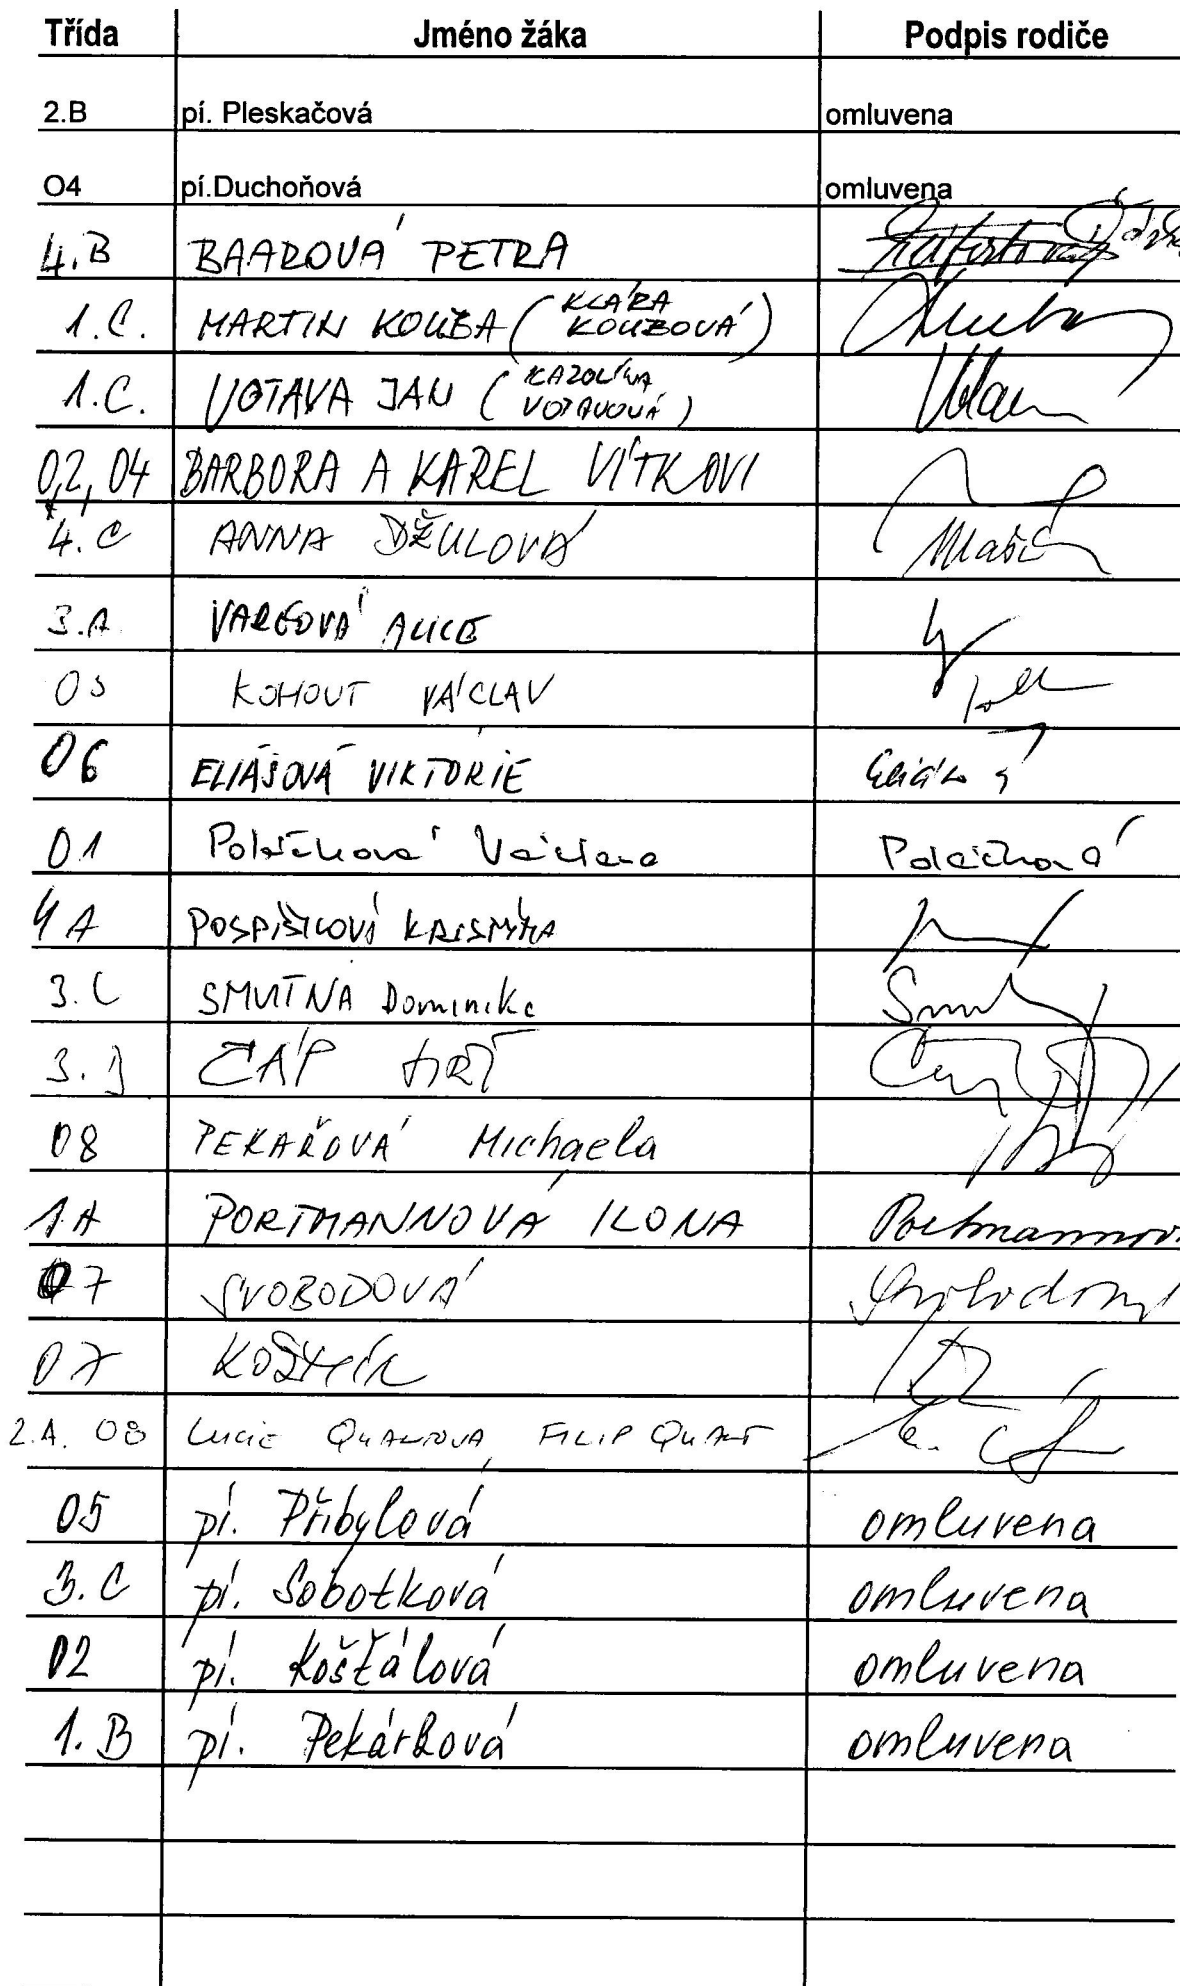 Třída Jméno žáka Podpis rodiče
2.B pí. Pleskačová omluvena
O4 pí.Duchoňová omluvena
4.B BAAROVÁ PETRA
1.C. MARTIN KOUBA (KLÁRA KOUBOVÁ)
1.C. VOTAVA JAN (KAROLÍNA VOTAVOVÁ)
02, 04 BARBORA A KAREL VÍTKOVI
4.C ANNA DŽULOVÁ
3.A VARGOVÁ ALICE
KOHOUT VÁCLAV
06 ELIÁŠOVÁ VIKTORIE
01 Poláčková Václava Poláčková
4A POSPÍŠILOVÁ
3.C SMUTNÁ Dominika
ČÁP JIŘÍ
08 PEKAŘOVÁ Michaela
1A PORTMANNOVÁ ILONA
07 SVOBODOVÁ
07
2.A. 08 LUCIE QUASTOVÁ, FILIP QUAST
05 pí. Přibylová omluvena
3.C pí. Sobotková omluvena
02 pí. Košťálová omluvena
1.B pí. Pekárková omluvena